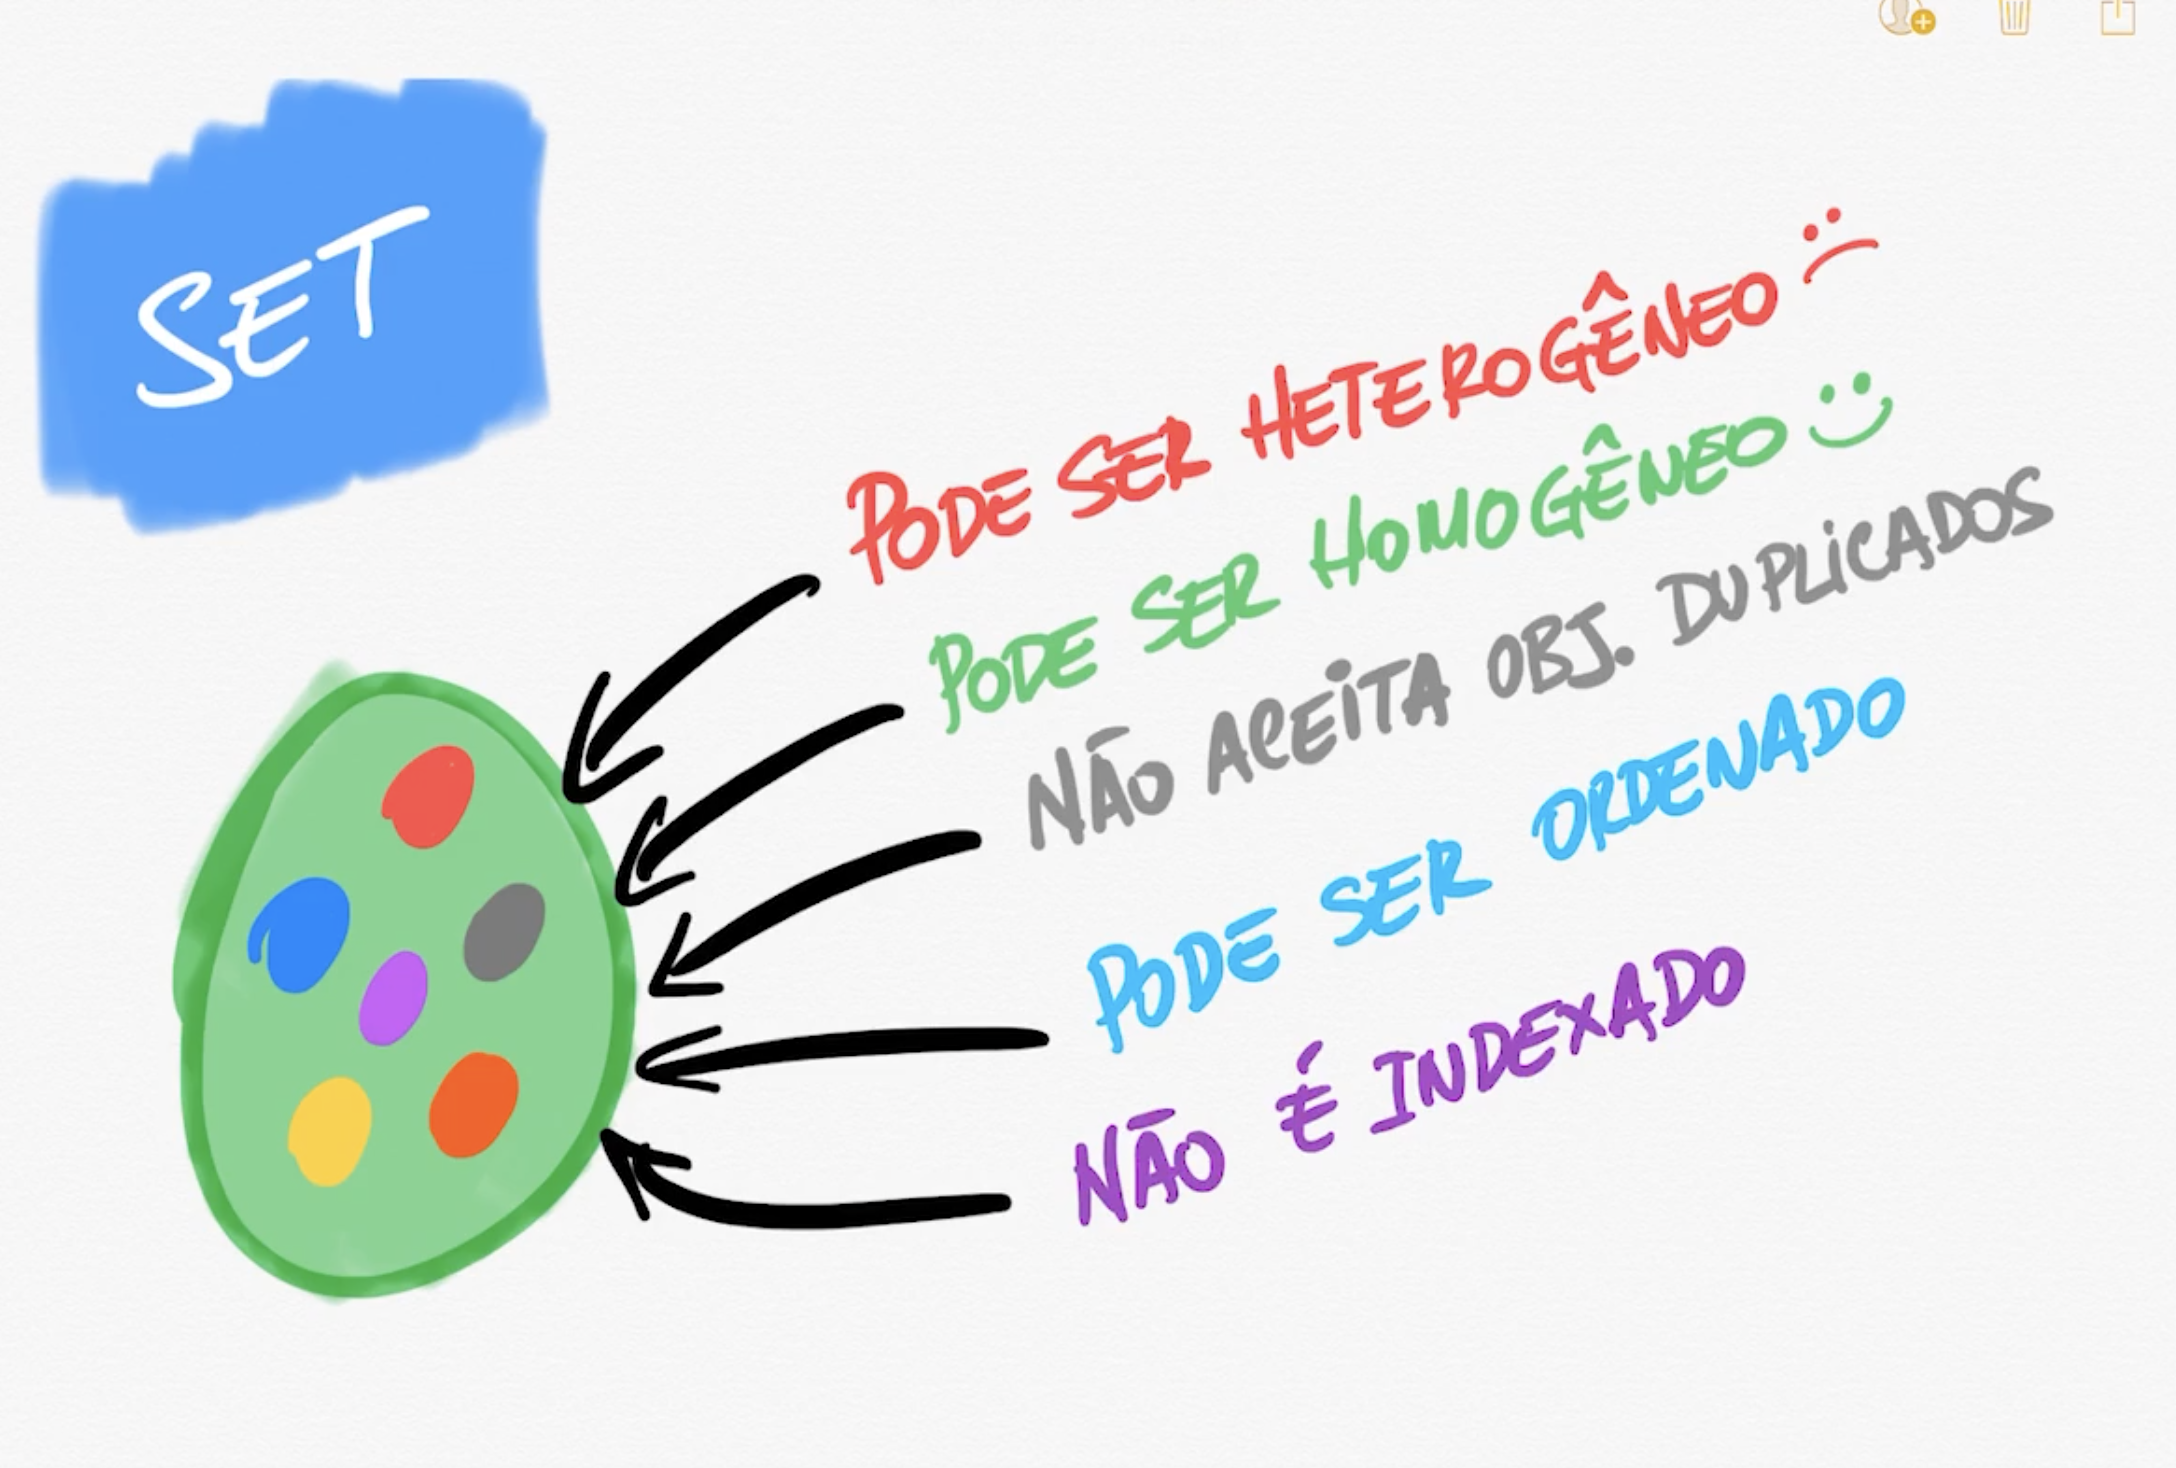 SET
PODE SER HETEROGÊNEO
PODE SER HOMOGÊNEO
NÃO ACEITA OBJ. DUPLICADOS
PODE SER ORDENADO
NÃO É INDEXADO